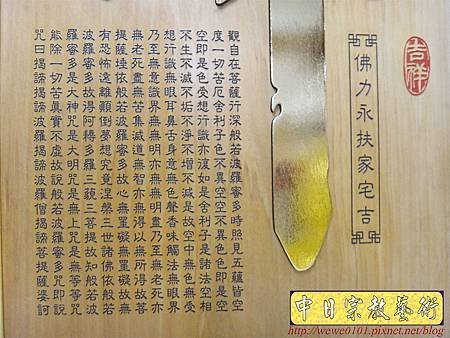 吉祥
佛力永扶家宅吉
觀自在菩薩行深般若波羅蜜多時照見五蘊皆空
度一切苦厄舍利子色不異空空不異色色即是空
空即是色受想行識亦復如是舍利子是諸法空相
不生不滅不垢不淨不增不減是故空中無色無受
想行識無眼耳鼻舌身意無色聲香味觸法無眼界
乃至無意識界無無明亦無無明盡乃至無老死亦
無老死盡無苦集滅道無智亦無得以無所得故菩
提薩埵依般若波羅蜜多故心無罣礙無罣礙故無
有恐怖遠離顛倒夢想究竟涅槃三世諸佛依般若
波羅蜜多故得阿耨多羅三藐三菩提故知般若波
羅蜜多是大神咒是大明咒是無上咒是無等等咒
能除一切苦真實不虛故說般若波羅蜜多咒即說
咒曰揭諦揭諦波羅揭諦波羅僧揭諦菩提薩婆訶
中日宗教藝術
http://wewe0101.pixnet.net/blog